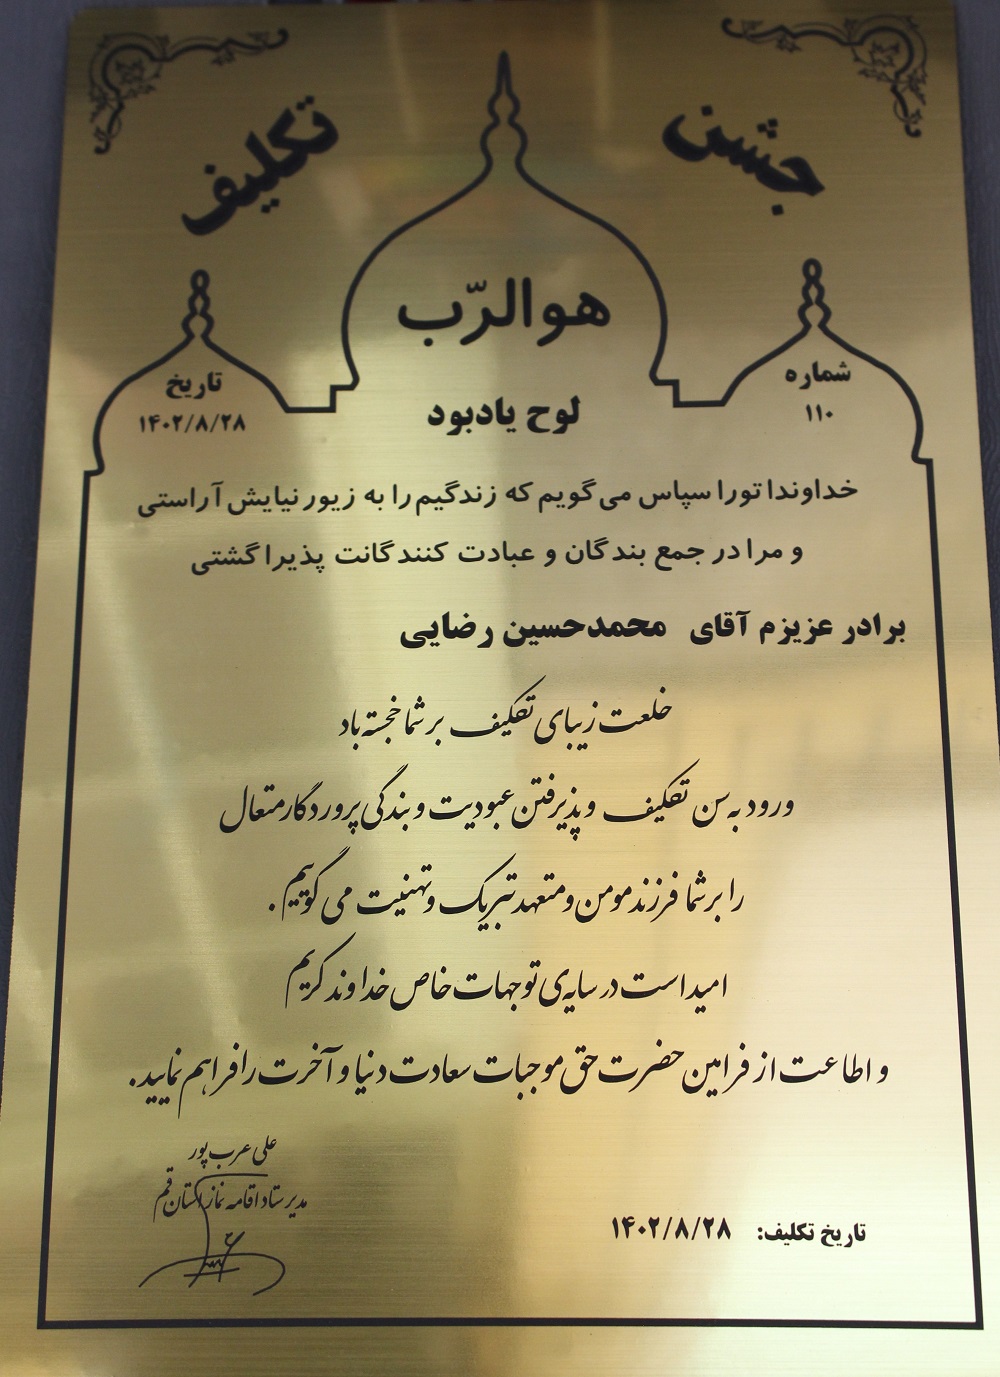 جشن تکلیف
هوالرّب
شماره
۱۱۰
تاریخ
۱۴۰۲/۸/۲۸
لوح یادبود
خداوندا تورا سپاس می‌گویم که زندگیم را به زیور نیایش آراستی
و مرا در جمع بندگان و عبادت کنندگانت پذیرا گشتی
برادر عزیزم آقای محمدحسین رضایی
خلعت زیبای تکلیف بر شما خجسته باد
ورود به سن تکلیف و پذیرفتن عبودیت و بندگی پروردگار متعال
را بر شما فرزند مومن و متعهد تبریک و تهنیت می گوییم.
امید است در سایه‌ی توجهات خاص خداوند کریم
و اطاعت از فرامین حضرت حق موجبات سعادت دنیا و آخرت را فراهم نمایید.
علی عرب پور
مدیر ستاد اقامه نماز استان قم
تاریخ تکلیف: ۱۴۰۲/۸/۲۸